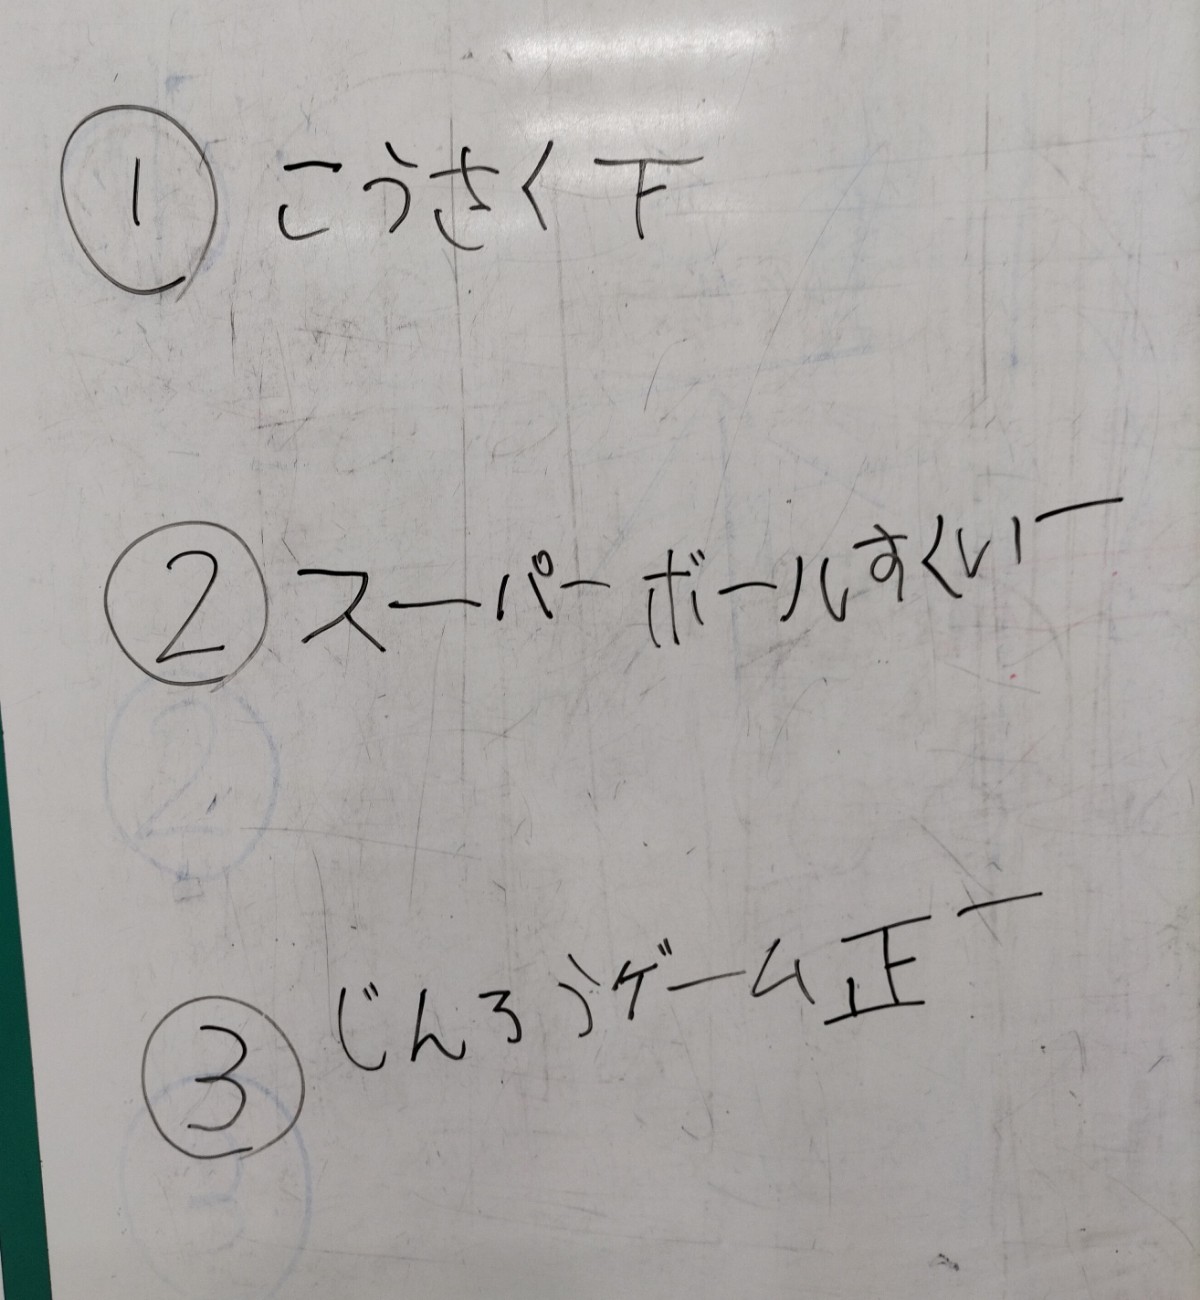 ① こうさく 下
② スーパーボールすくい 一
③ じんろうゲーム 正一